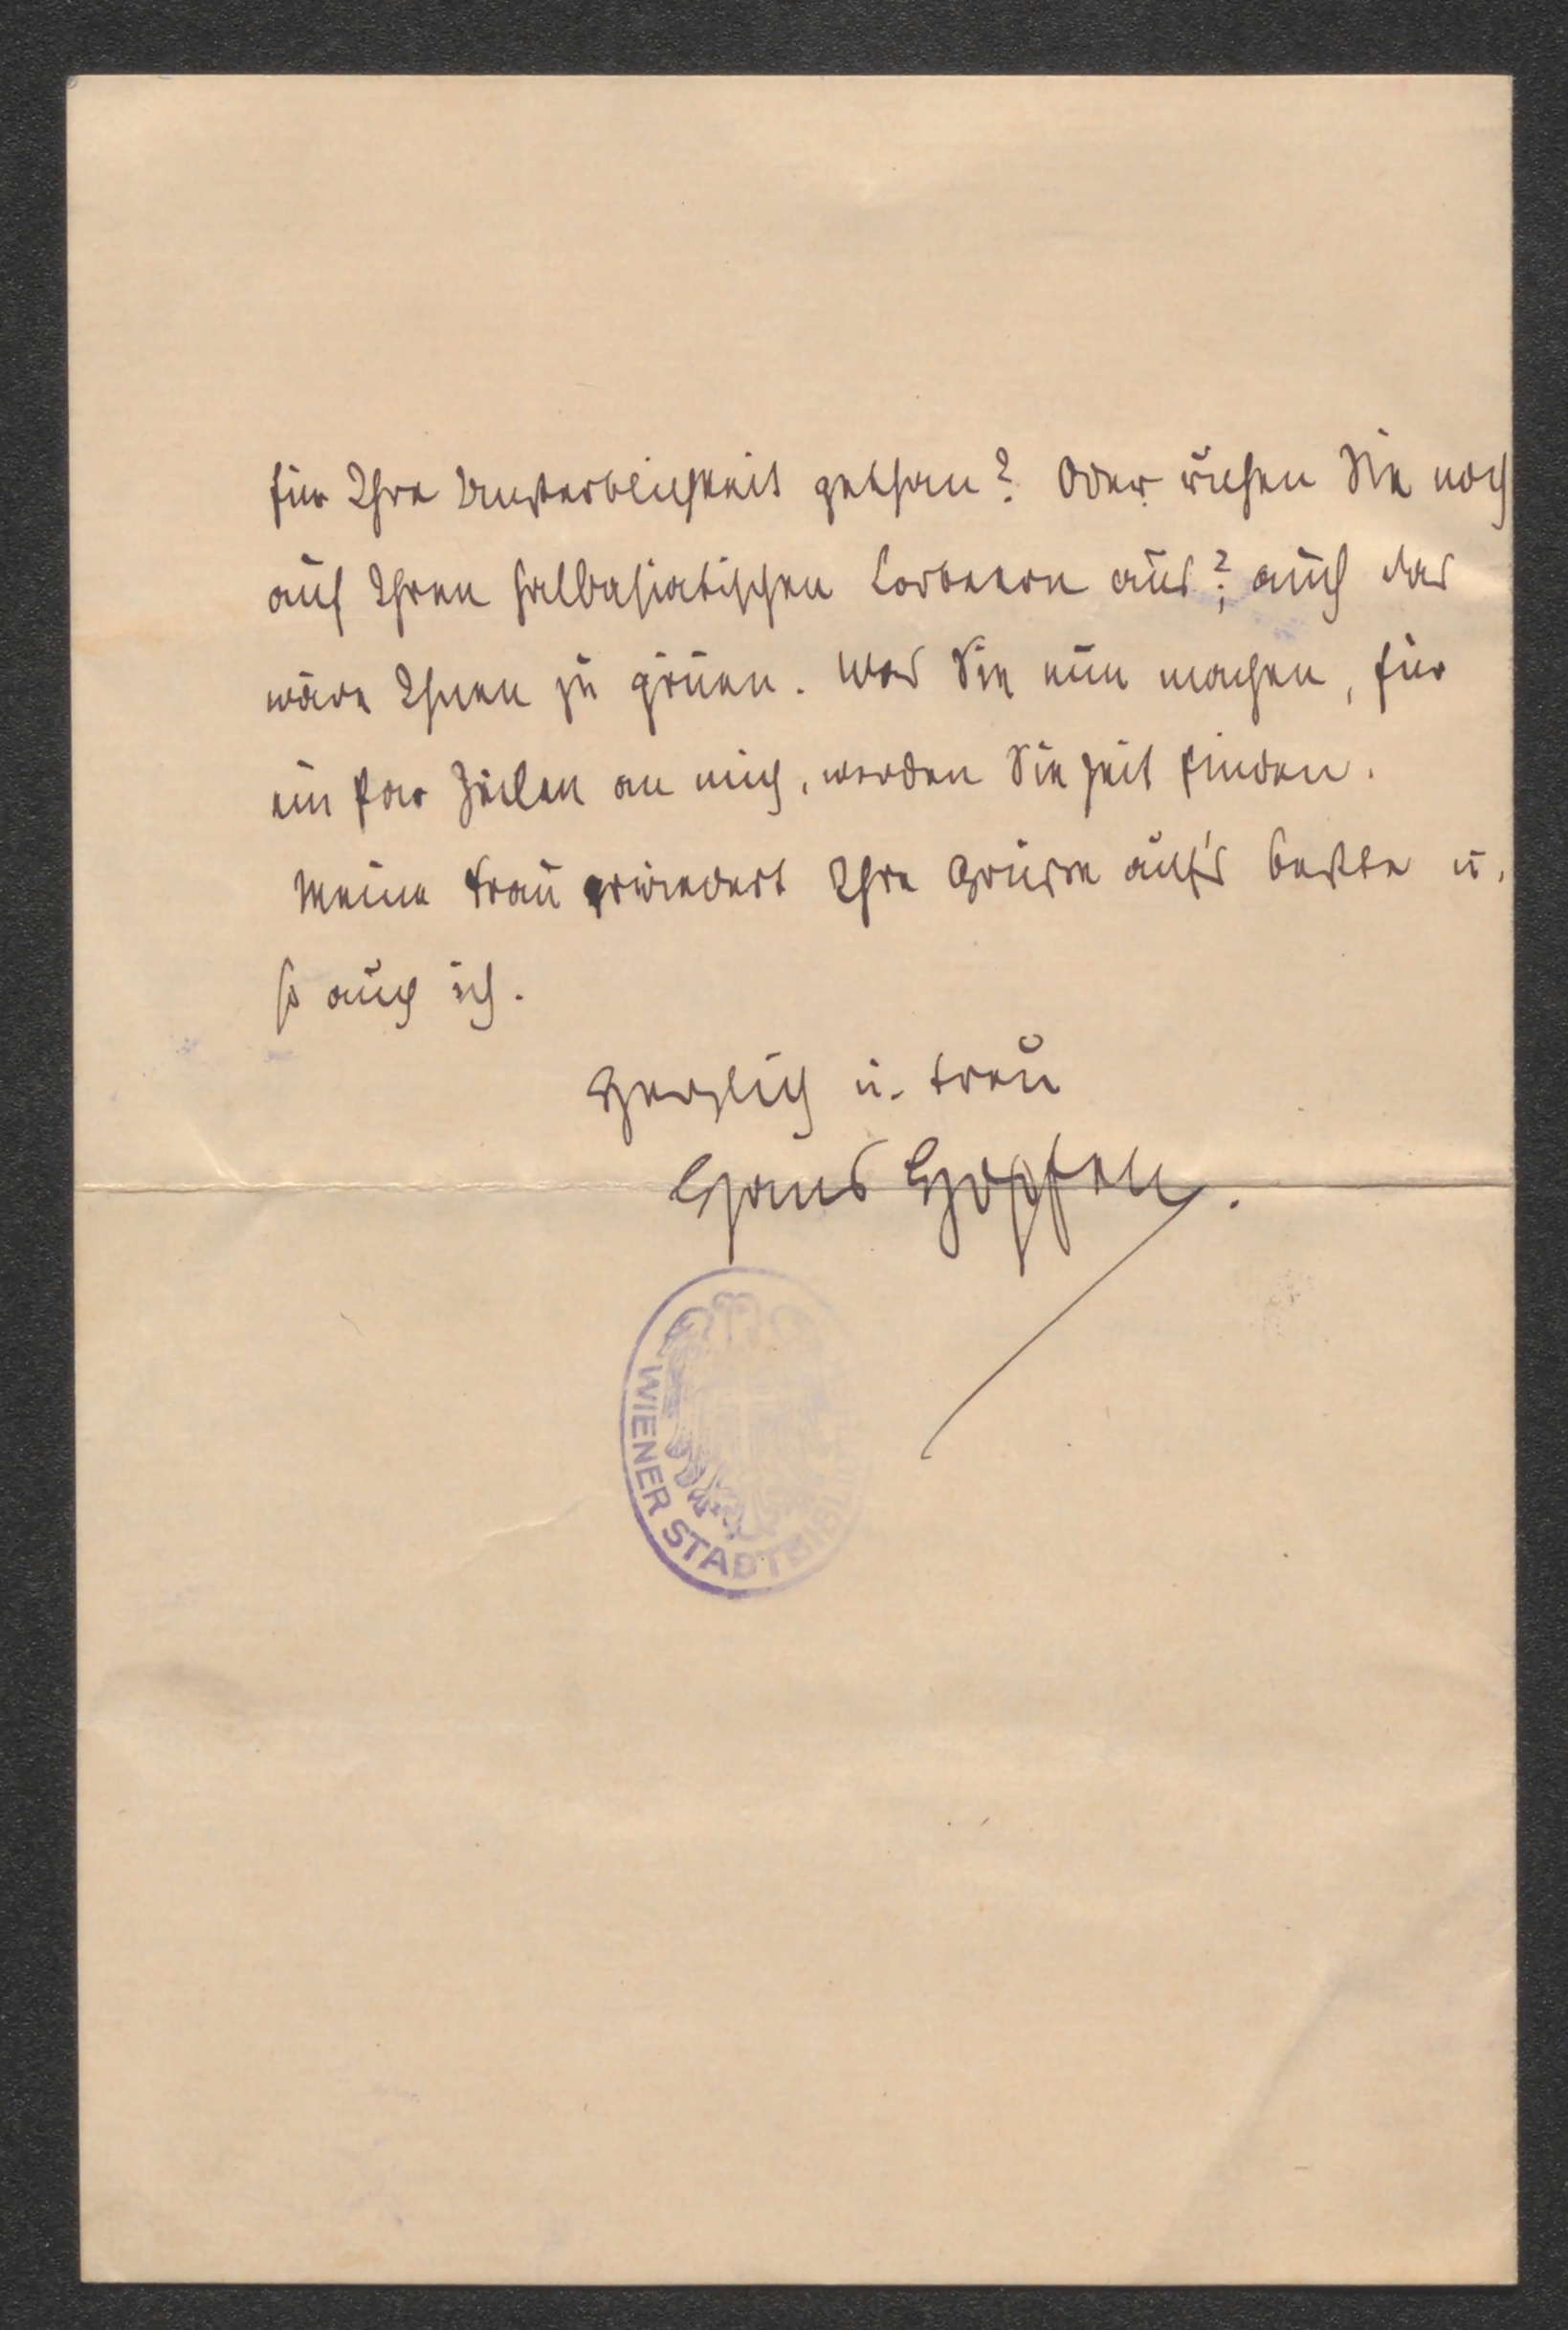 für Ihre Unsterblichkeit gethan? Oder ruhen Sie noch
auf Ihren halbasiatischen Lorbeern aus? auch das
wäre Ihnen zu gönnen. Was Sie nun machen, für
ein par Zeilen an mich, werden Sie Zeit finden.
Meine Frau erwiedert Ihre Grüsse auf's beßte u.
so auch ich.
Herzlich u. treu
Hans Hopfen.
WIENER STADTBIBLI